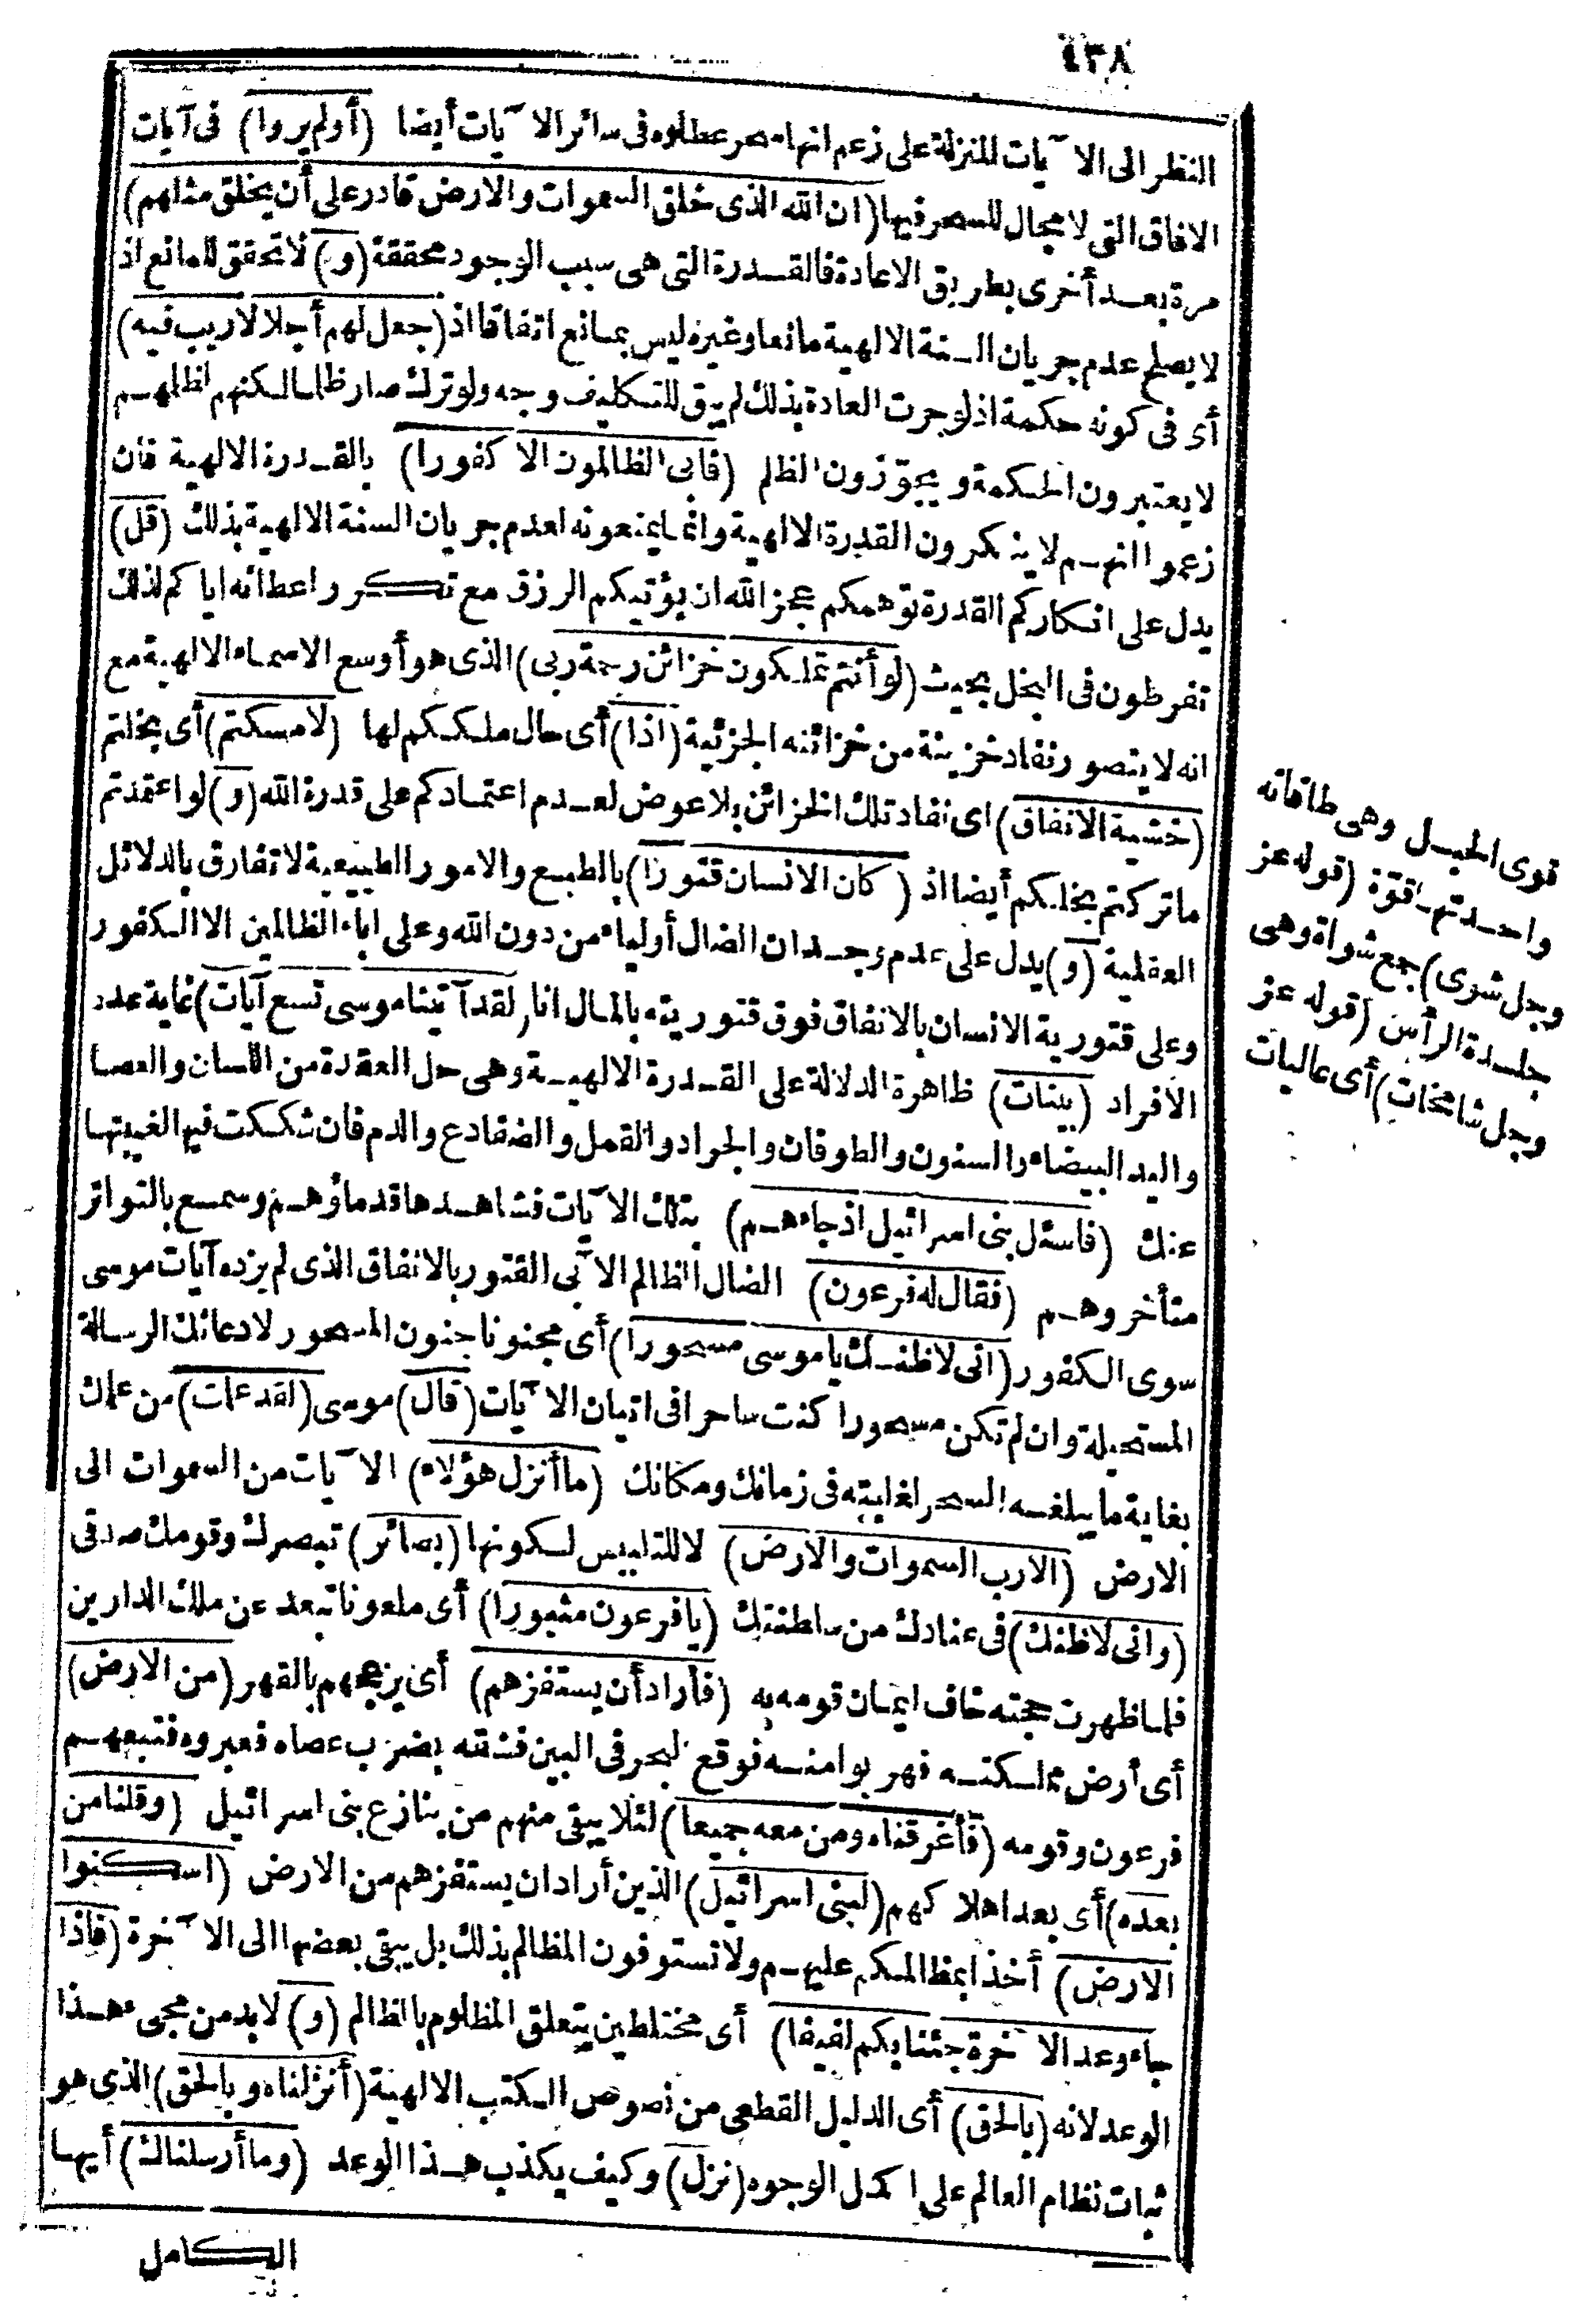 ٤٣٨
النظر الى الآيات المنزلة على زعم انها سحر عطلوه فى سائر الآيات أيضا (أولم يروا) فى آيات
الآفاق التى لا مجال للسحر فيها (ان الله الذى خلق السموات والارض قادر على أن يخلق مثلهم)
مرة بعد أخرى بطريق الاعادة فالقدرة التى هى سبب الوجود محققة (و) لا تحقق للمانع اذ
لا يصلح عدم جريان السنة الالهية مانعا وغيره ليس بمانع اتفاقا اذ (جعل لهم أجلا لا ريب فيه)
أى فى كونه حكمة اذ لو جرت العادة بذلك لم يبق للتكليف وجه ولو ترك صار ظلما لكنهم لظلمهم
لا يعتبرون الحكمة ويجوّزون الظلم (فأبى الظالمون الا كفورا) بالقدرة الالهية فان
زعموا انهم لا ينكرون القدرة الالهية وانما يمنعونه لعدم جريان السنة الالهية بذلك (قل)
يدل على انكاركم القدرة توهمكم عجز الله ان يؤتيكم الرزق مع تكرر اعطائه اياكم لذلك
تفرطون فى البخل بحيث (لو أنتم تملكون خزائن رحمة ربى) الذى هو أوسع الاسماء الالهية مع
انه لا يتصور نفاد خزينة من خزائنه الجزئية (اذا) أى حال ملككم لها (لامسكتم) أى بخلتم
(خشية الانفاق) اى نفاد تلك الخزائن بلا عوض لعدم اعتمادكم على قدرة الله (و) لو اعتمدتم
ما تركتم بخلكم أيضا اذ (كان الانسان قتورا) بالطبع والامور الطبيعية لا تفارق بالدلائل
العقلية (و) يدل على عدم وجدان الضال أولياء من دون الله وعلى اباء الظالمين الا الكفور
وعلى قتورية الانسان بالانفاق فوق قتوريته بالمال انا (لقد آتينا موسى تسع آيات) غاية عدد
الأفراد (بينات) ظاهرة الدلالة على القدرة الالهية وهى حل العقدة من اللسان والعصا
واليد البيضاء والسنون والطوفان والجراد والقمل والضفادع والدم فان شككت فيها لغيبتها
عنك (فاسئل بنى اسرائيل اذ جاءهم) بتلك الآيات فشاهدها قدماؤهم وسمع بالتواتر
متأخروهم (فقال له فرعون) الضال الظالم الآبى القتور بالانفاق الذى لم يزده آيات موسى
سوى الكفور (انى لاظنك يا موسى مسحورا) أى مجنونا جنون المسحور لادعائك الرسالة
المستحيلة وان لم تكن مسحورا كنت ساحرا فى اتيان الآيات (قال) موسى (لقد علمت) من علمك
بغاية ما يبلغه السحر لغايته فى زمانك ومكانك (ما أنزل هؤلاء) الآيات من السموات الى
الارض (الا رب السموات والارض) لا للتلبيس لكونها (بصائر) تبصرك وقومك صدقى
(وانى لاظنك) فى عنادك من سلطنتك (يا فرعون مثبورا) أى ملعونا تبعد عن ملك الدارين
فلما ظهرت حجته خاف ايمان قومه به (فأراد أن يستفزهم) أى يزعجهم بالقهر (من الارض)
أى أرض مملكته فهربوا منه فوقع البحر فى البين فشقه بضرب عصاه فعبروه فتبعهم
فرعون وقومه (فأغرقناه ومن معه جميعا) لئلا يبقى منهم من ينازع بنى اسرائيل (وقلنا من
بعده) أى بعد اهلاكهم (لبنى اسرائيل) الذين أراد ان يستفزهم من الارض (اسكنوا
الارض) أخذا بمظالمكم عليهم ولا تستوفون المظالم بذلك بل يبقى بعضها الى الآخرة (فاذا
جاء وعد الآخرة جئنا بكم لفيفا) أى مختلطين يتعلق المظلوم بالظالم (و) لا بد من مجىء هذا
الوعد لانه (بالحق) أى الدليل القطعى من نصوص الكتب الالهية (أنزلناه وبالحق) الذى هو
ثبات نظام العالم على اكمل الوجوه (نزل) وكيف يكذب هذا الوعد (وما أرسلناك) أيها
الكامل
قوى الحبل وهى طاقاته
واحدتها قوّة (قوله عز
وجل شوى) جمع شواة وهى
جلدة الرأس (قوله عز
وجل شامخات) أى عاليات